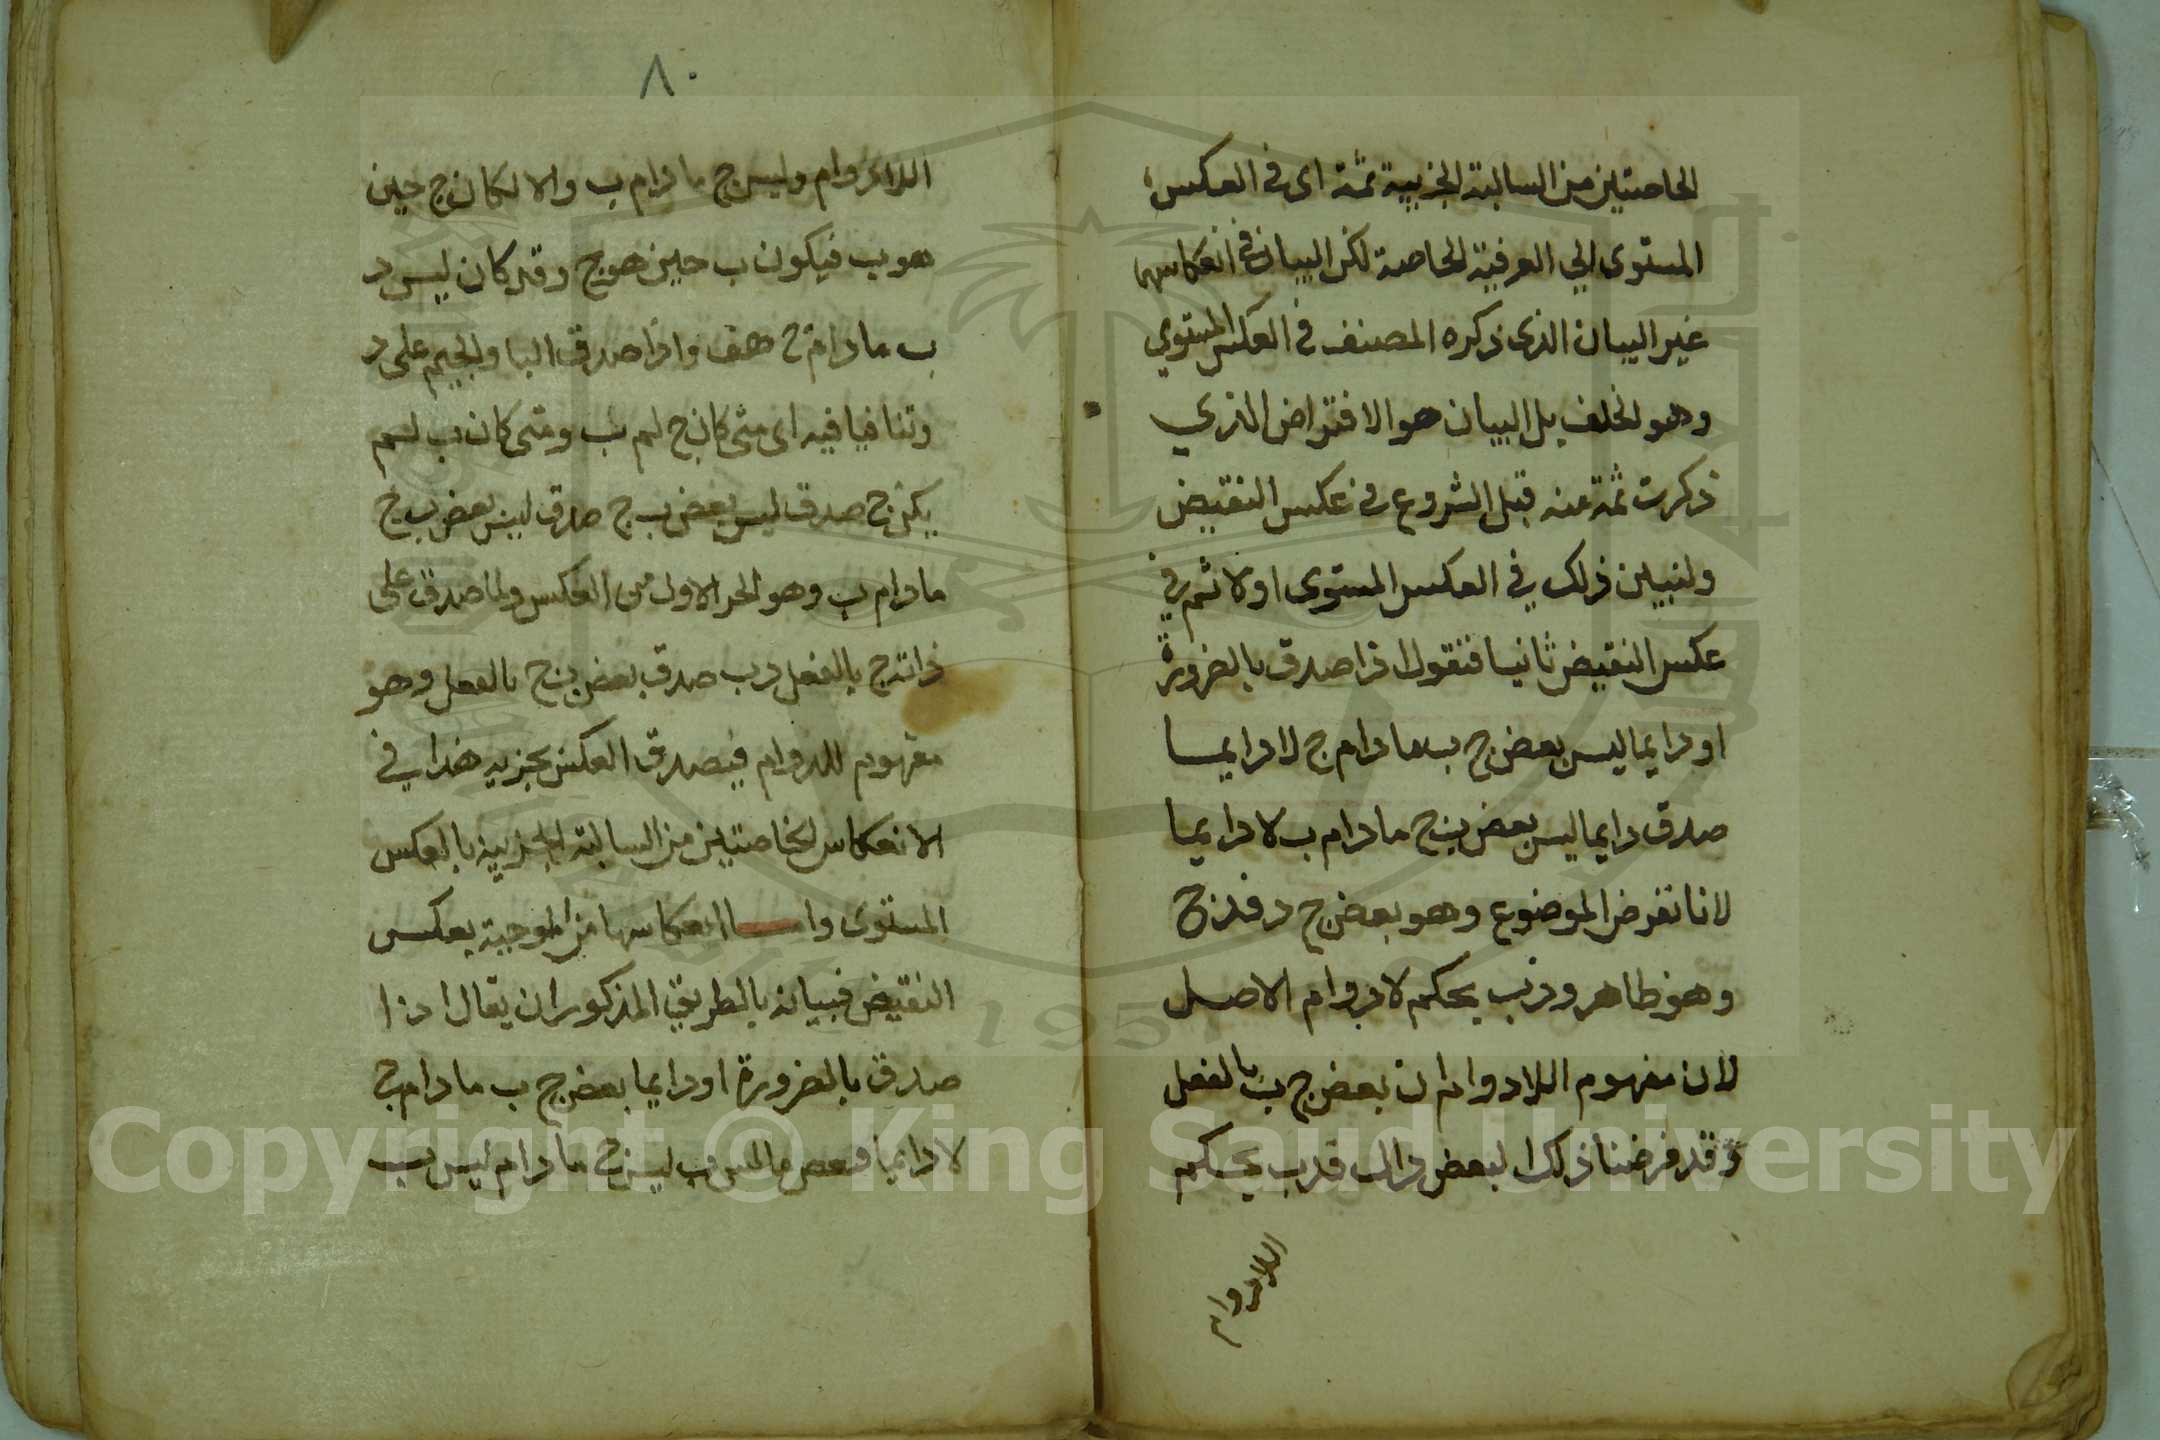 الخاصتين من السالبة الجزيية ثمة اى في العكس
المستوى الي العرفية الخاصة لكن البيان في انعكاسهما
غير البيان الذى ذكره المصنف في العكس المستوي
وهو الخلف بل البيان هو الافتراض الذي
ذكرت ثمة عنه قبل الشروع في عكس النقيض
ولنبين ذلك في العكس المستوى اولا ثم في
عكس النقيض ثانيا فنقول اذا صدق بالضرورة
او دايما ليس بعض ج ب ما دام ج لا دايما
صدق دايما ليس بعض ب ج ما دام ب لا دايما
لانا نفرض الموضوع وهو بعض ج د فد ج
وهو ظاهر ود ب بحكم لا دوام الاصل
لان مفهوم اللادوام ان بعض ج ب بالفعل
وقد فرضنا ذلك البعض د ب بحكم
اللادوام
٨٠
اللادوام وليس ج ما دام ب والا لكان ج حين
هو ب فيكون ب حين هو ج وقد كان ليس د
ب ما دام ج هف واذا صدق البا والجيم على د
وتنافيا فيه اى متى كان ج لم ب ومتى كان ب لم
يكن ج صدق ليس بعض ب ج صدق ليس بعض ب ج
ما دام ب وهو الجز الاول من العكس ولما صدق على
ذات ج بالفعل د ب صدق بعض ب ج بالفعل وهو
مفهوم اللادوام فيصدق العكس بجزييه هذا في
الانعكاس الخاصتين من السالبة الجزيية بالعكس
المستوى واما انعكاسهما من الموجبة بعكس
النقيض فبيانه بالطريق المذكور ان يقال اذا
صدق بالضرورة او دايما بعض ج ب ما دام ج
لا دايما فبعض ما ليس ب ليس ج ما دام ليس ب
Copyright © King Saud University
1957